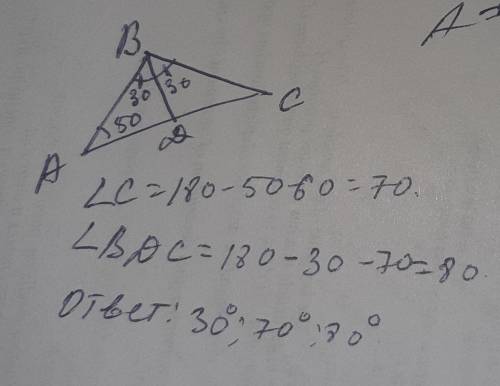 A =
B
30 30
50
C
A
D
∠C=180-50-60=70.
∠BDC=180-30-70=80
Ответ: 30°; 70°; 80°